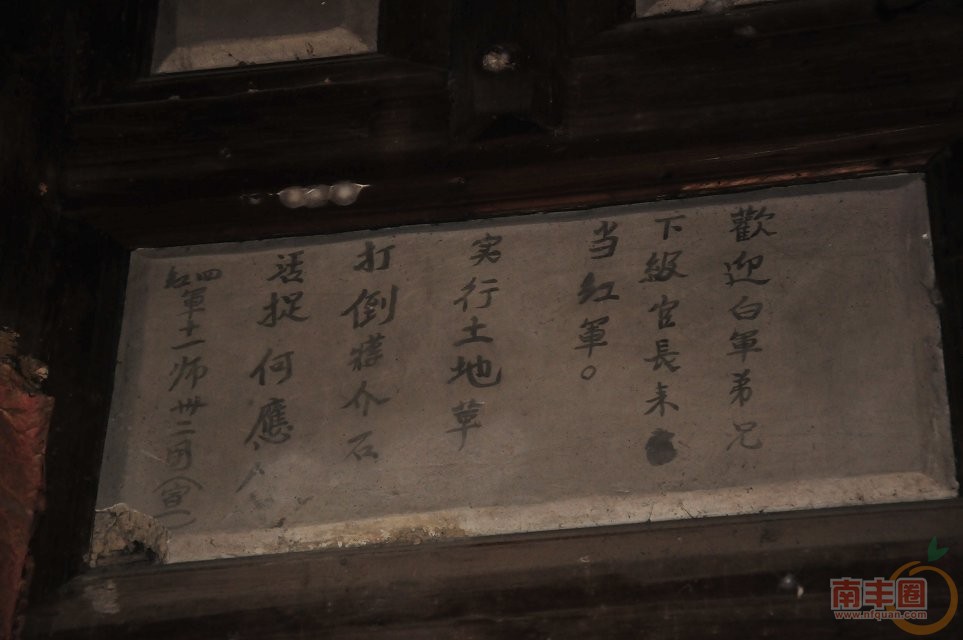 歡迎白軍弟兄
下級官長来
当紅軍。
实行土地革
打倒蒋介石
活捉何應
紅四軍十一师卅二团(宣)
南丰圈
www.nfquan.com